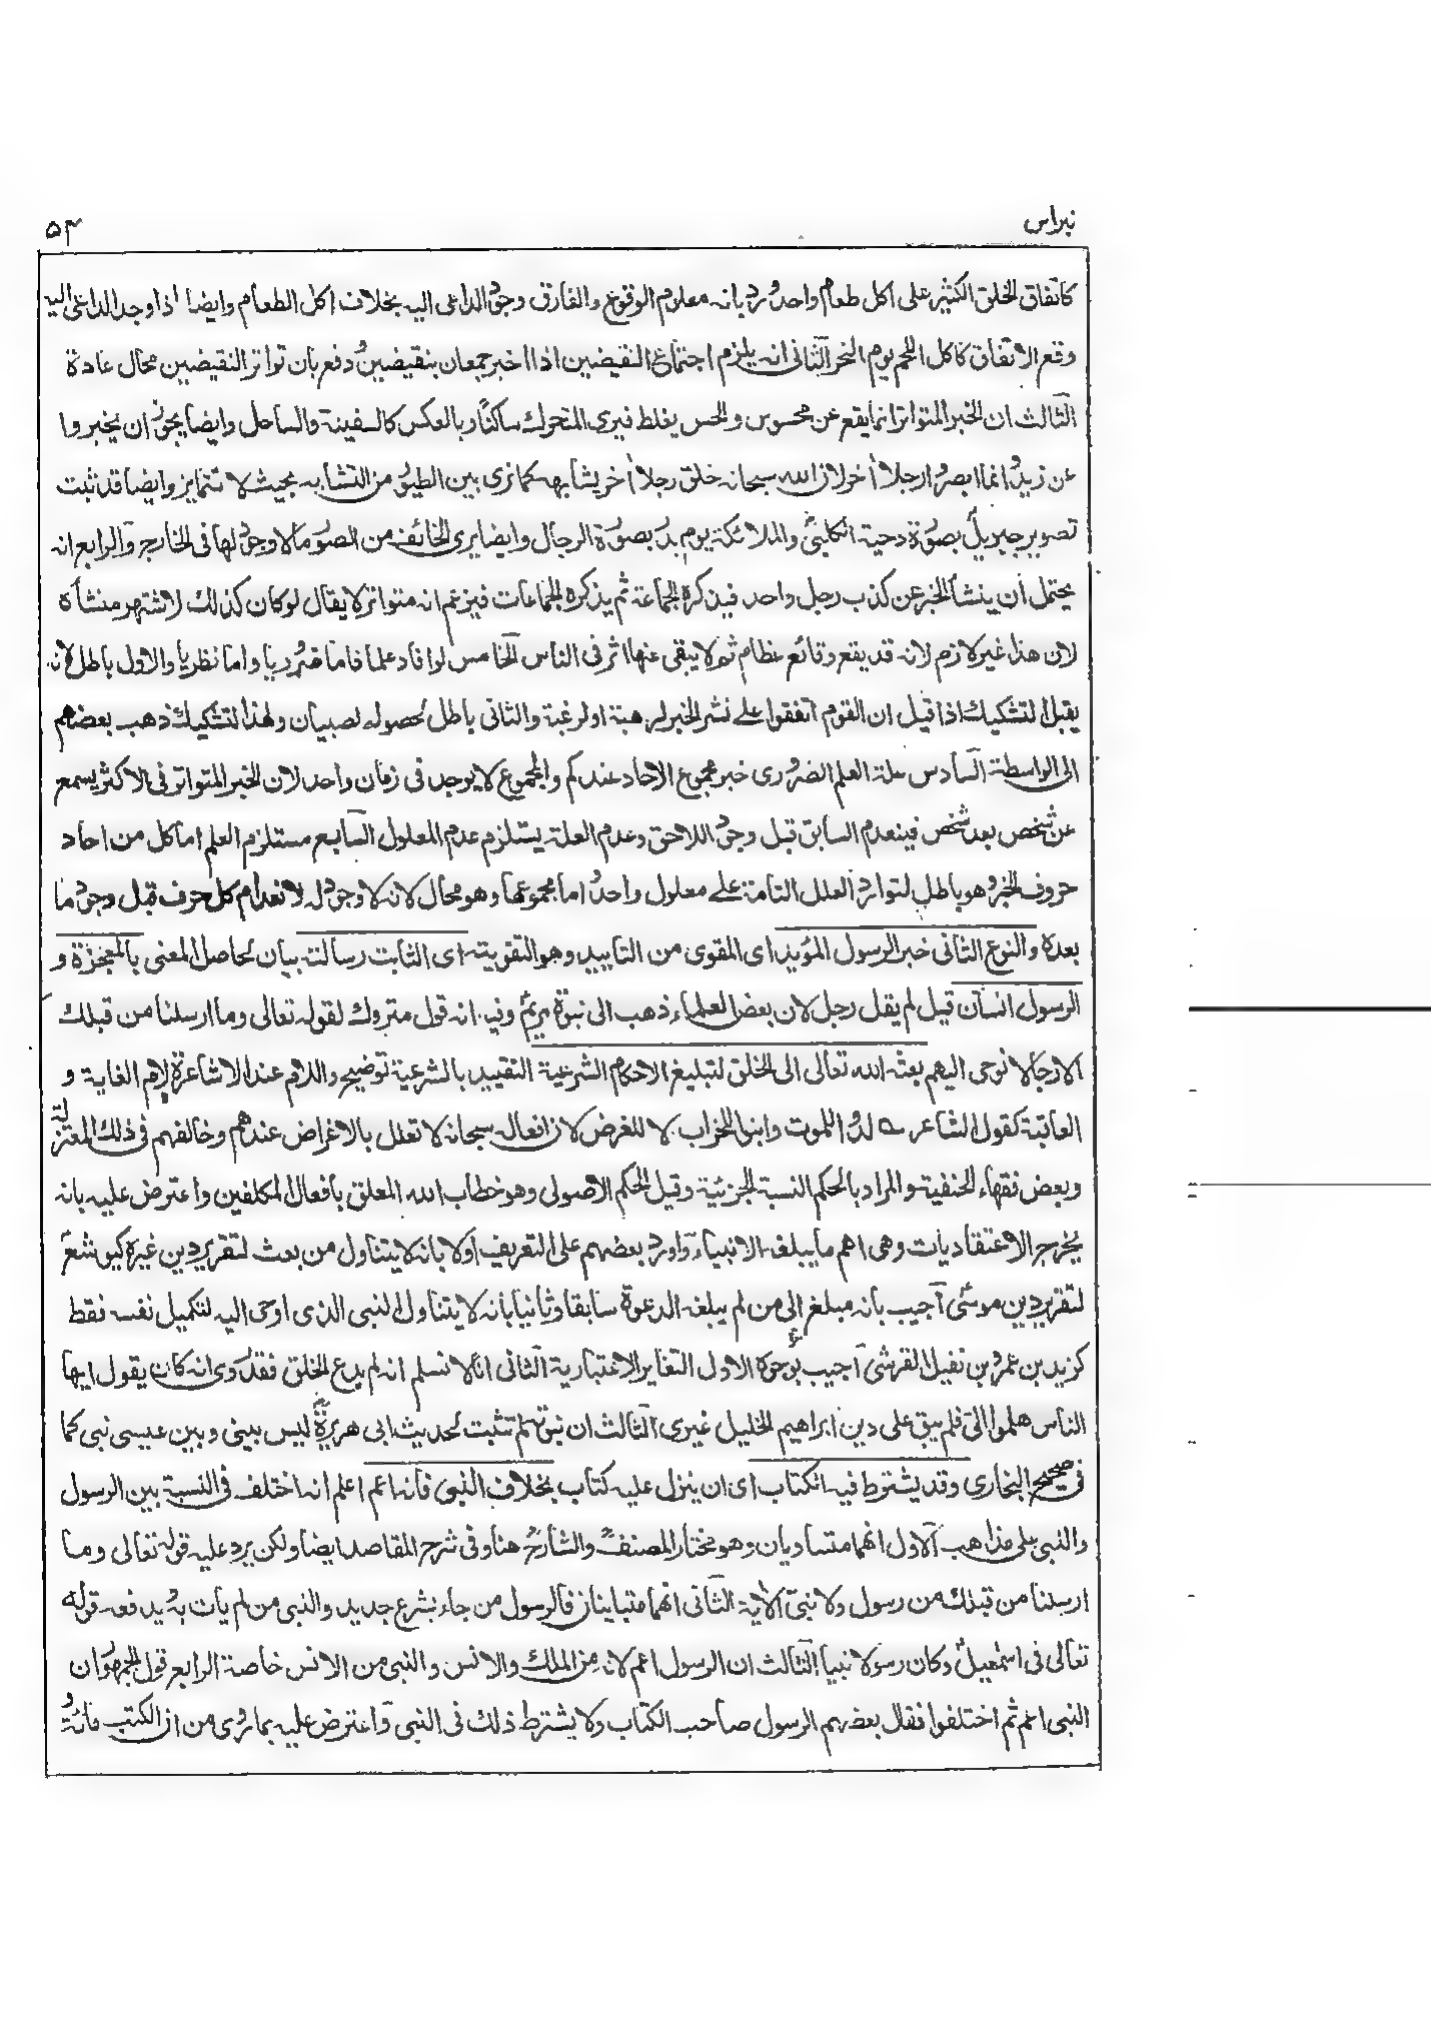 نبراس
۵۴
كاتفاق الخلق الكثير على اكل طعام واحد ورد بانه معلوم الوقوع والفارق وجود الداعى اليه بخلاف اكل الطعام وايضا اذا وجد الداعى اليه
وقع الاتفاق كاكل اللحم يوم النحر الثانى انه يلزم اجتماع النقيضين اذا اخبر جمعان بنقيضين ودفع بان تواتر النقيضين محال عادة
الثالث ان الخبر المتواتر انما يقع عن محسوس والحس يغلط فيرى المتحرك ساكنا وبالعكس كالسفينة والساحل وايضا يجوز ان يخبروا
عن زيد وانما ابصروا رجلا اخر لان الله سبحانه خلق رجلا اخر يشابهه كما نرى بين الطيور من التشابه بحيث لا تتمايز وايضا قد ثبت
تصوير جبريل بصورة دحية الكلبى والملائكة يوم بدر بصورة الرجال وايضا يرى الخائف من الصور ما لا وجود لها فى الخارج والرابع انه
يحتمل ان ينشأ الخبر عن كذب رجل واحد فيذكره لجماعة ثم يذكره الجماعات فيزعم انه متواتر لا يقال لو كان كذلك لاشتهر منشأه
لان هذا غير لازم لانه قد يقع وقائع عظام ثم لا يبقى عنها اثر فى الناس الخامس لو افاد علما فاما ضروريا واما نظريا والاول باطل لانه
يقبل التشكيك اذا قيل ان القوم اتفقوا على نشر الخبر لرهبة او لرغبة والثانى باطل لحصوله لصبيان ولهذا التشكيك ذهب بعضهم
الى الواسطة السادس علة العلم الضرورى خبر مجموع الاحاد عندكم والمجموع لا يوجد فى زمان واحد لان الخبر المتواتر فى الاكثر يسمع
عن شخص بعد شخص فينعدم السابق قبل وجود اللاحق وعدم العلة يستلزم عدم المعلول السابع مستلزم العلم اما كل من احاد
حروف الخبر وهو باطل لتوارد العلل التامة على معلول واحد واما مجموعها وهو محال لانه لا وجود له لانعدام كل حرف قبل وجود ما
بعده والنوع الثانى خبر الرسول المؤيد اى المقوى من التاييد وهو التقوية اى الثابت رسالته بيان لحاصل المعنى بالمعجزة و
الرسول انسان قيل لم يقل رجل لان بعض العلماء ذهب الى نبوة مريم وفيه انه قول متروك لقوله تعالى وما ارسلنا من قبلك
الا رجالا نوحى اليهم بعثه الله تعالى الى الخلق لتبليغ الاحكام الشرعية التقييد بالشرعية توضيح واللام عند الاشاعرة لام الغاية و
العاقبة كقول الشاعر ے لدوا للموت وابنوا للخراب لا للغرض لان افعاله سبحانه لا تعلل بالاغراض عندهم وخالفهم فى ذلك المعتزلة
وبعض فقهاء الحنفية والمراد بالحكم النسبة الجزئية وقيل الحكم الاصولى وهو خطاب الله المعلق بافعال المكلفين واعترض عليه بانه
يخرج الاعتقاديات وهى اهم ما يبلغه الانبياء واورد بعضهم على التعريف اولا بانه لا يتناول من بعث لتقرير دين غيره كيوشع
لتقرير دين موسى اجيب بانه مبلغ الى من لم يبلغه الدعوة سابقا وثانيا بانه لا يتناول النبى الذى اوحى اليه لتكميل نفسه فقط
كزيد بن عمرو بن نفيل القرشى اجيب بوجوه الاول التغاير الاعتبارية الثانى انا لا نسلم انه لم يدع الخلق فقد روى انه كان يقول ايها
الناس هلموا الى فلم يبق على دين ابراهيم الخليل غيرى الثالث ان نبوته لم تثبت لحديث ابى هريرة ليس بينى وبين عيسى نبى كما
فى صحيح البخارى وقد يشترط فيه الكتاب اى ان ينزل عليه كتاب بخلاف النبى فانه اعم اعلم انه اختلف فى النسبة بين الرسول
والنبى على مذاهب الاول انهما متساويان وهو مختار المصنف والشارح هنا وفى شرح المقاصد ايضا ولكن يرد عليه قوله تعالى وما
ارسلنا من قبلك من رسول ولا نبى الاية الثانى انهما متباينان فالرسول من جاء بشرع جديد والنبى من لم يات به ويدفعه قوله
تعالى فى اسمعيل وكان رسولا نبيا الثالث ان الرسول اعم لانه من الملك والانس والنبى من الانس خاصة الرابع قول الجمهور ان
النبى اعم ثم اختلفوا فقال بعضهم الرسول صاحب الكتاب ولا يشترط ذلك فى النبى واعترض عليه بما روى من ان الكتب مائة و